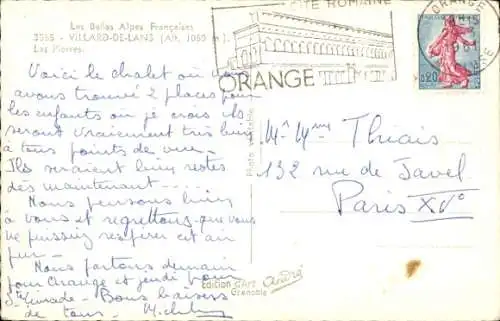 Les Belles Alpes Françaises
3855 - VILLARD-DE-LANS (Alt. 1050 m.)
Les Pierres.
Voici le chalet où nous
avons trouvé 2 places pour
les enfants où je crois ils
seront vraiment très bien
à tous points de vue.
Ils seraient bien restés
dès maintenant....
Nous pensons bien
à vous et regrettons que vous ne
puissiez respirer cet air
pur -
Nous partons demain
pour Orange et jeudi
Bons baisers
de tous -
CITE ROMAINE
ORANGE
ORANGE
0,20
Mr Mme Thiais
132 rue de Javel
Paris XVe
Edition d'Art André
Grenoble